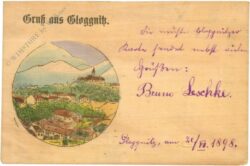 Gruß aus Gloggnitz.
Die nächste Gloggnitzer
Karte sendet nebst vielen
Grüßen:
Benno Leschke.
Gloggnitz, am 20/VI. 1898.